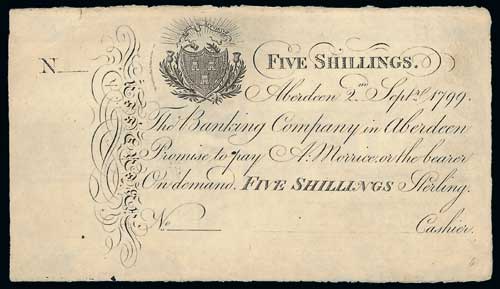 N
FIVE SHILLINGS.
Aberdeen 2nd Septr. 1799.
The Banking Company in Aberdeen
Promise to pay A. Morrice, or the bearer
On demand. FIVE SHILLINGS Sterling.
No
Cashier.